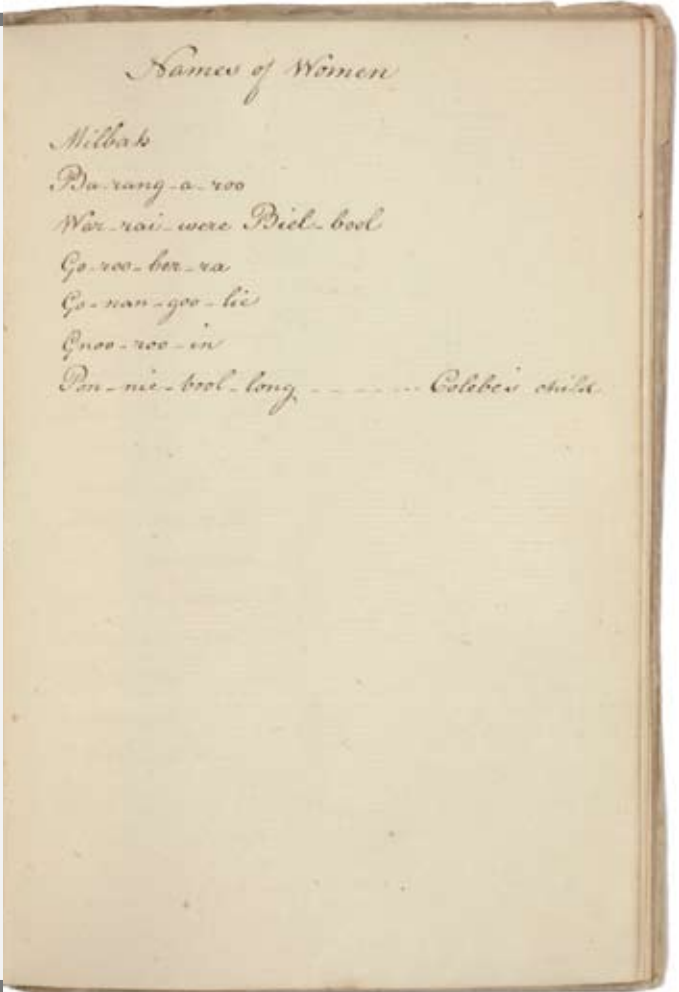 Names of Women
Milbah
Ba-rang-a-roo
War-rai-were Biel-bool
Go-roo-ber-ra
Go-nan-goo-lie
Gnoo-roo-in
Pon-nie-bool-long - - - - - - - Colebe's child